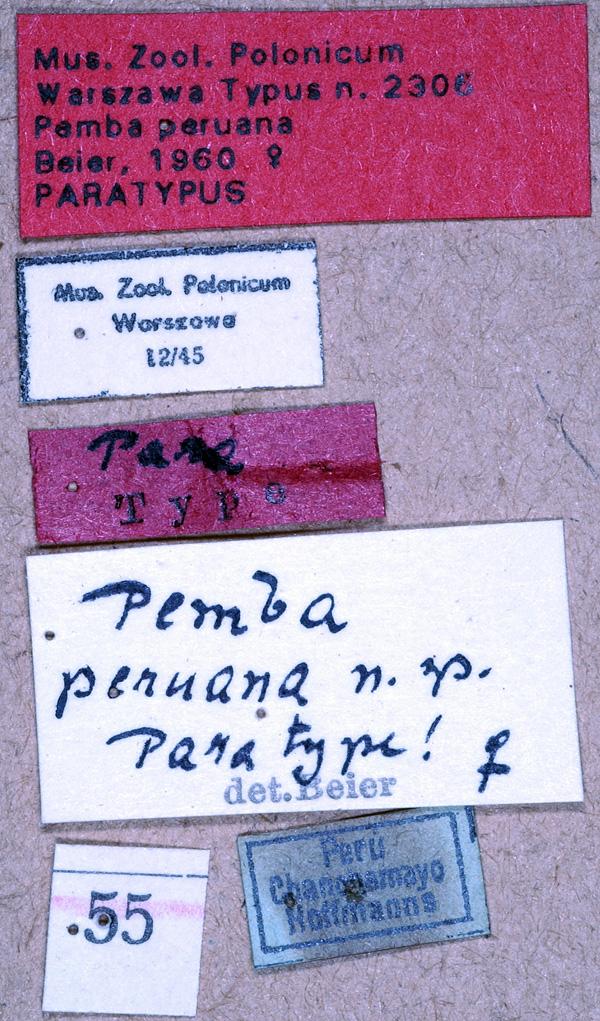 Mus. Zool. Polonicum
Warszawa Typus n. 2306
Pemba peruana
Beier, 1960 ♀
PARATYPUS
Mus. Zool. Polonicum
Warszawa
12/45
Para
Type
Pemba
peruana n. sp.
Paratype! ♀
det. Beier
.55
Peru
Chanchamayo
Hoffmanns